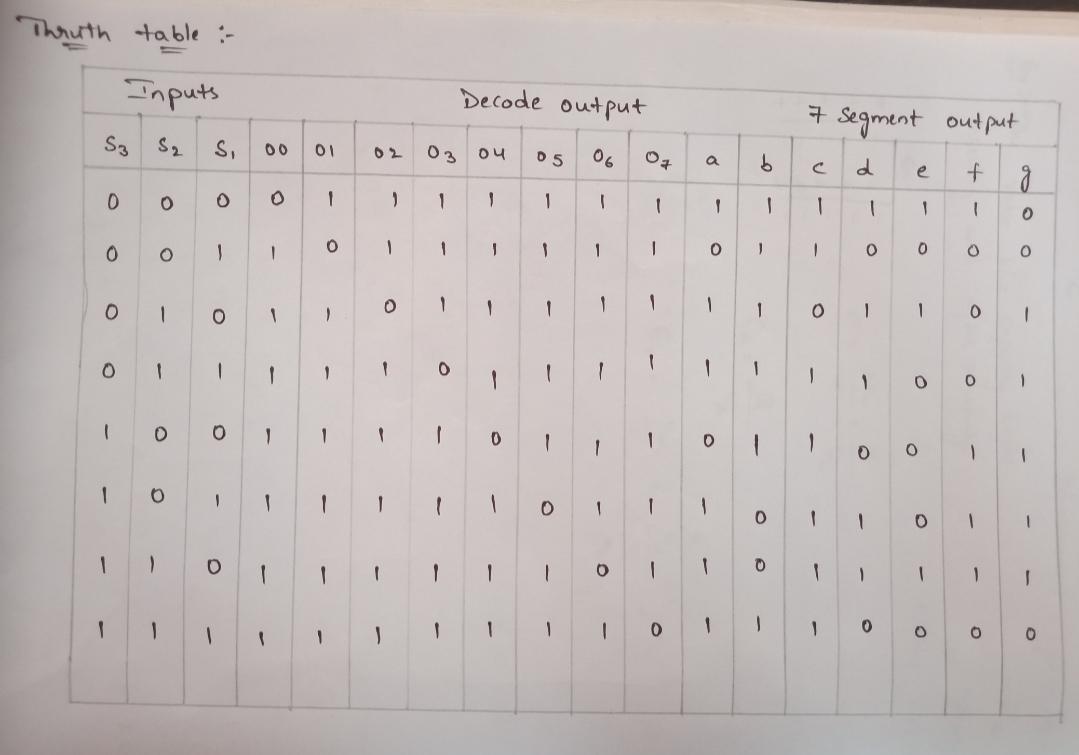 Thruth table :-
Inputs Decode output 7 segment output
S3 S2 S1 00 01 02 03 04 05 06 07 a b c d e f g
0 0 0 0 1 1 1 1 1 1 1 1 1 1 1 1 1 0
0 0 1 1 0 1 1 1 1 1 1 0 1 1 0 0 0 0
0 1 0 1 1 0 1 1 1 1 1 1 1 0 1 1 0 1
0 1 1 1 1 1 0 1 1 1 1 1 1 1 1 0 0 1
1 0 0 1 1 1 1 0 1 1 1 0 1 1 0 0 1 1
1 0 1 1 1 1 1 1 0 1 1 1 0 1 1 0 1 1
1 1 0 1 1 1 1 1 1 0 1 1 0 1 1 1 1 1
1 1 1 1 1 1 1 1 1 1 0 1 1 1 0 0 0 0